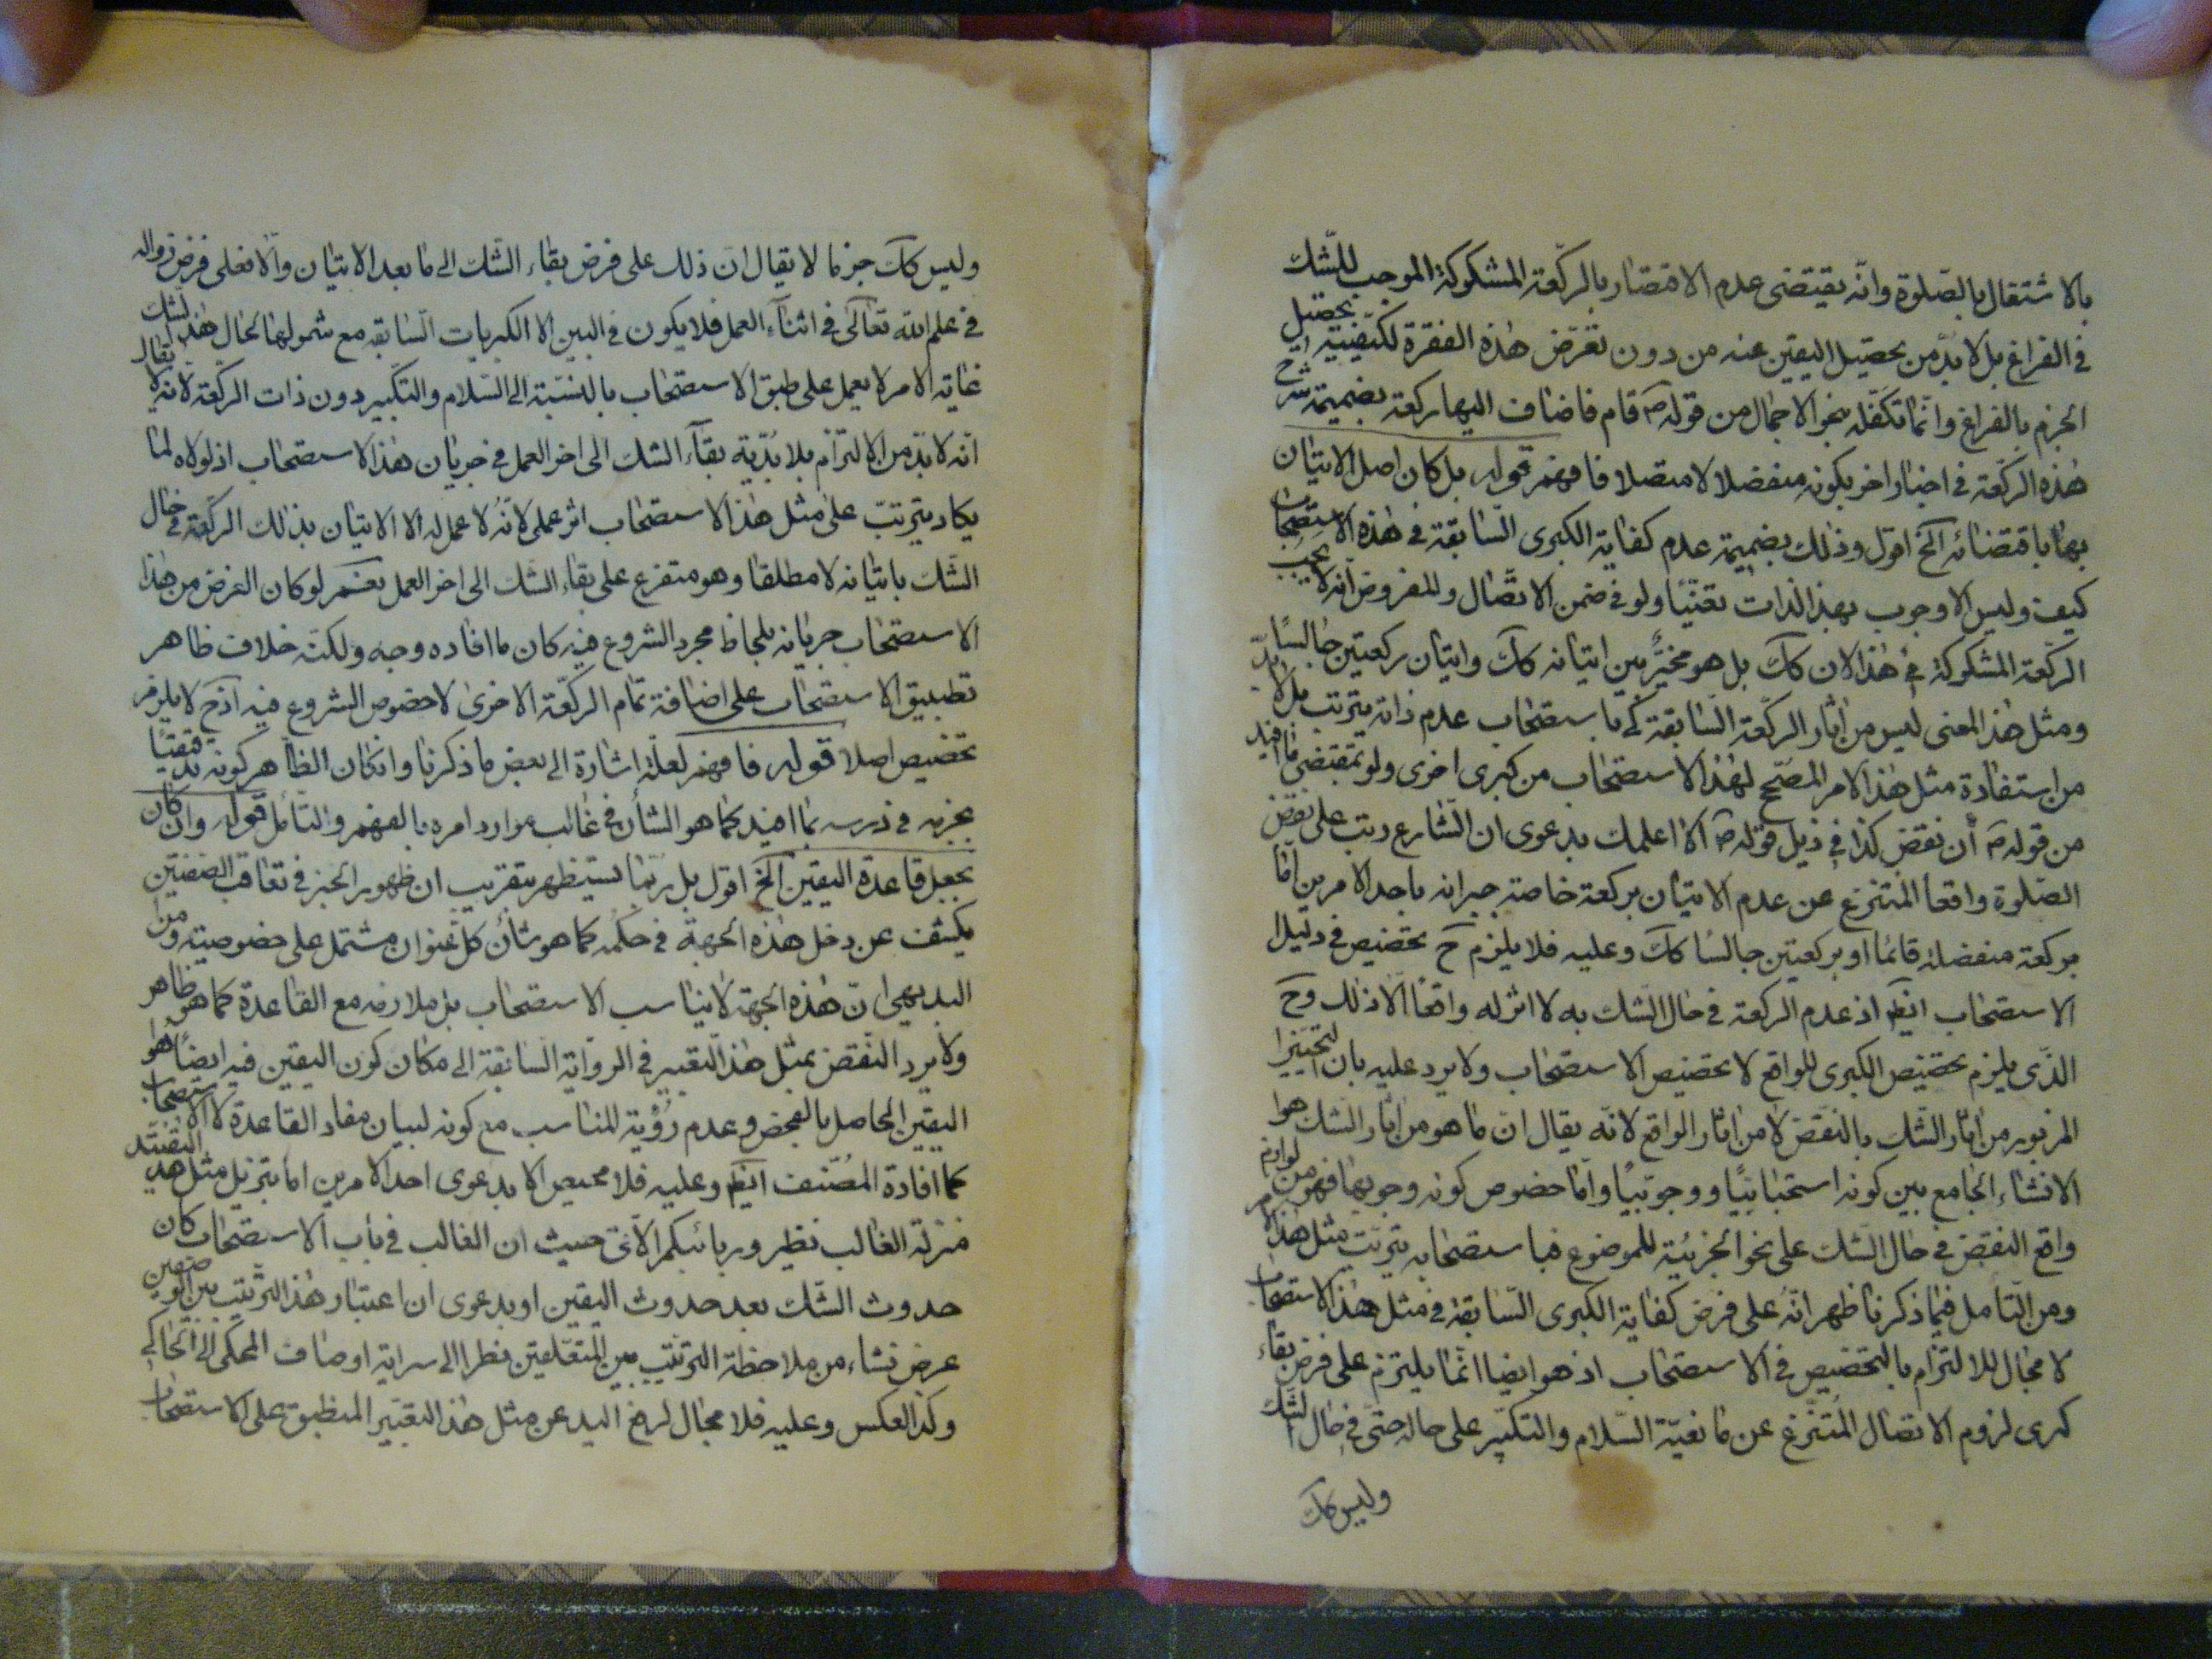 بالاشتغال بالصّلوة وانّه يقتضى عدم الاقتصار بالركّعة المشكوكة الموجب للشّك
فى الفراغ بل لا بدّ من تحصيل اليقين عنه من دون تعرّض هٰذه الفقرة لكيفيّة تحصيل
الجزم بالفراغ وانّما تكفّله بنحو الاجمال من قوله ٓ قام فاضاف اليها ركعة بضميمة شرح
هٰذه الركّعة فى اخبار اخر بكونه منفصلا لا متصلا فافهم قوله بل كان اصل الاتيان
بها باقتضائه الخ اقول وذٰلك بضميمة عدم كفاية الكبرى السّابقة فى هٰذه الاستصحاب
كيف وليس الا وجوب بهذ الذات تعيّنيا ولو فى ضمن الاتصّال والمفروض انّه لا يجب
الركّعة المشكوكة فى هٰذا الان كك بل هو مخيّرٌ بين اتيانه كك واتيان ركعتين جالسًا
ومثل هٰذ المعنى ليس من اثار الركّعة السّابقة كى باستصحاب عدم ذاته يترتب بل لا بدّ
من استفادة مثل هٰذ الامر المصحّح لهٰذ الاستصحاب من كبرى اخرى ولو بمقتضى ما افيد
من قوله ٓ أن نقص كذا فى ذيل قوله ٓ الا اعلمك بدعوى ان الشّارع رتب على نقص
الصّلوة واقعا المنتزع عن عدم الاتيان بركعة خاصة جبرانه باحد الامرين امّا
بركعة منفصلة قائمًا او بركعتين جالسًا كك وعليه فلا يلزم ح تخصيص فى دليل ا
الاستصحاب ايضا اذ عدم الركعة فى حال الشّك به لا اثر له واقعًا الّا ذٰلك وح
الذّى يلزم تخصيص الكبرى للواقع لا تخصيص الاستصحاب ولا يرد عليه بان التخيير ا
المزبور من اثار الشّك بالنقص لا من اثار الواقع لانّه يقال انّ ما هو من اثار الشّك هو ا
الانشاء الجامع بين كونه استحبابيًا ووجوبيًا وامّا خصوص كونه وجوبها فهو من لوازم
واقع النقص فى حال الشّك على نحو الجزئية للموضوع فباستصحابه يترتب مثل هٰذ الامر
ومن التأمل فيما ذكرنا ظهر انّه على فرض كفاية الكبرى السّابقة فى مثل هٰذ الاستصحاب
لا مجال للالتزام بالتخصيص فى الاستصحاب اذ هو ايضا انّما يلتزم على فرض بقاء
كبرى لزوم الاتصال المُنتزع عن مانعيّة السّلام والتكبير على حاله حتىّ فى حال الشّك
وليس كك
وليس كك جزما لا يقال انّ ذلك على فرض بقاء الشّك الى ما بعد الاتيان والّا فعلى فرض زواله
فى علم اللّه تعالى فى اثناء العمل فلا يكون فى البين الا الكبريات السّابقه مع شمولها لحال هٰذ الشّك
غاية الامر لا يعمل على طبق الاستصحاب بالنسبة الى السّلام والتكبير دون ذات الركّعة لانه لا يقال
انّه لا بدّ من الالتزام بلا بدّية بقاء الشك الى اخر العمل فى جريان هٰذ الاستصحاب اذ لولاه لما
يكاد يترتب على مثل هٰذ الاستصحاب اثر عملى لانّه لا عمل له الا الاتيان بذلك الركّعة فى حال
الشّك باتيانه لا مطلقا وهو متفرع على بقاء الشّك الى اخر العمل نعم لو كان الغرض من هذا
الاستصحاب جريانه بلحاظ مجرد الشروع فيه كان ما افاده وجه ولكنّه خلاف ظاهر
تطبيق الاستصحاب على اضافة تمام الركّعة الاخرى لا خصوص الشروع فيه اذ ح لا يلزم
تخصيص اصلا قوله فافهم لعلّه اشارة الى بعض ما ذكرنا وان كان الظّاهر كونه تدقيقيّا
بحزبه فى درسه بما افيد كما هو الشأن فى غالب موارد امره بالفهم والتأمل قوله وان كان
بجعل قاعدة اليقين الخ اقول بل ربّما يستظهر بتقريب ان ظهور الخبر فى تعاقب الصّفتين
يكشف عن دخل هٰذه الجهة فى حكمه كما هو شأن كل عنوان مشتمل على خصوصيته ومن
البديهى انّ هٰذه الجهة لا يناسب الاستصحاب بل ملازمه مع القاعدة كما هو ظاهر
ولا يرد النّقض بمثل هٰذ التّعبير فى الروّاية السّابقة الى مكان كون اليقين فيه ايضًا هو
اليقين الحاصل بالفحص وعدم رؤية المناسب مع كونه لبيان مفاد القاعدة لا الاستصحاب
كما افادة المُصنّف ايضا وعليه فلا محيص الا بدعوى احد الامرين اما بتنزيل مثل هذ التقيّد
منزلة الغالب نظير وربائبكم الاّتى حيث ان الغالب فى باب الاستصحاب كان
حدوث الشّك بعد حدوث اليقين او بدعوى ان اعتبار هٰذ الترّتيب بين الوصفين
عرض نشاء من ملاحظة الترتيب بين المتعّلقين نظرا الى سراية اوصاف المحكى الى الحاكى
وكذ العكس وعليه فلا مجال لرفع اليد عن مثل هٰذ التعبير المنطبق على الاستصحاب